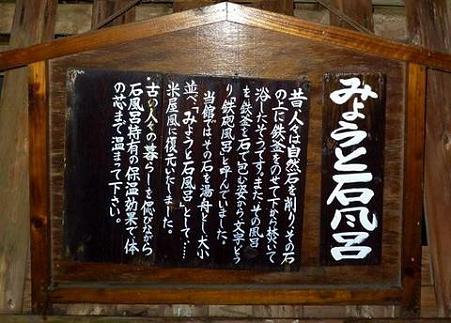 みょうと石風呂
昔人々は自然石を削り、その石
の上に鉄釜をのせて下から焚いて
浴したそうです。また、その風呂
を、鉄釜を石で包む姿から文字どう
り「鉄砲風呂」と呼んでいました。
当館ではその石を湯舟とし大小
並べ、「みょうと石風呂」として、…
米屋風に復元いたしました。
・古の人々の暮らしを偲びながら
石風呂特有の保温効果で体
の芯まで温まって下さい。